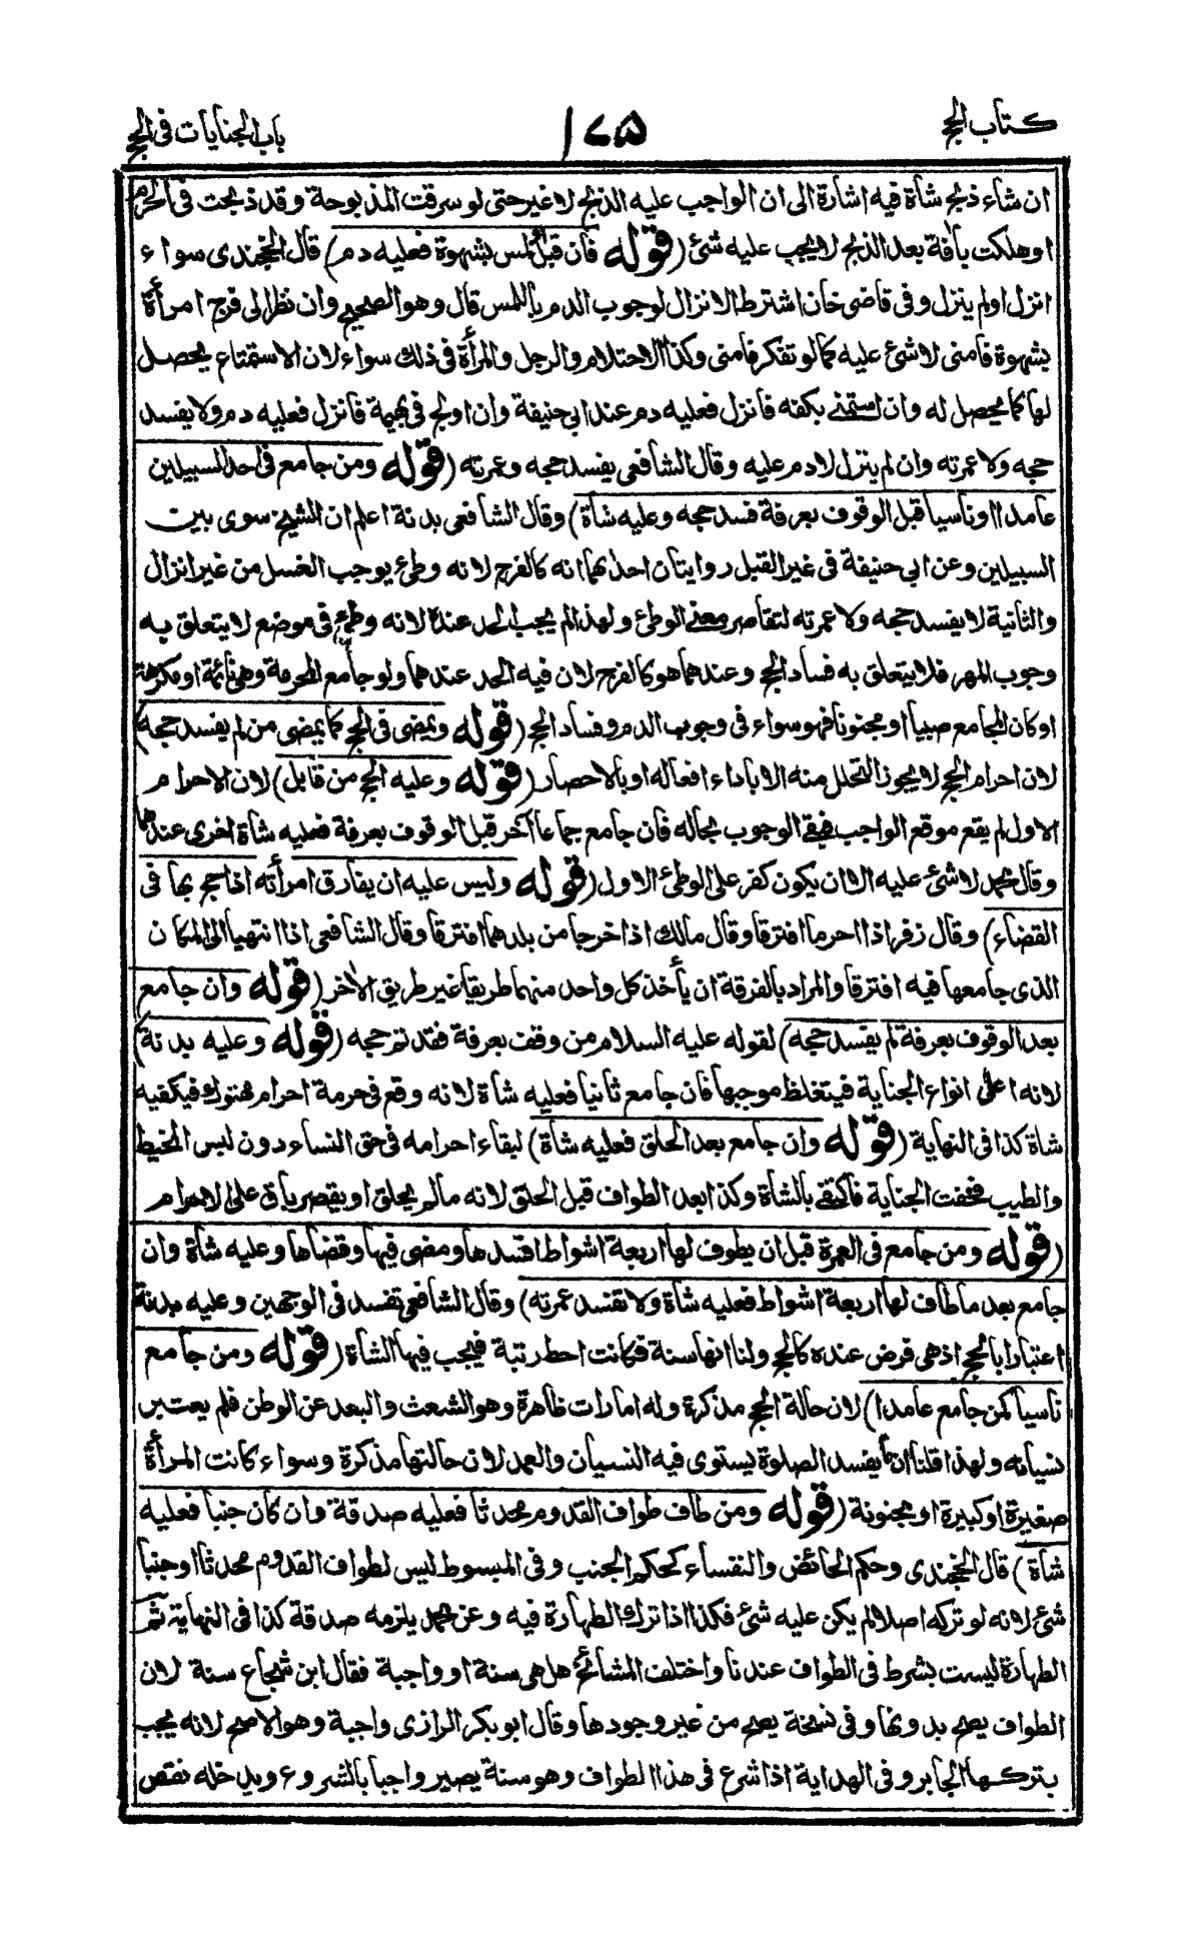 كتاب الحج
١٧٥
باب الجنايات فى الحج
ان شاء ذبح شأة فيه اشارة الى ان الواجب عليه الذبح لا غير حتى لو سرقت المذبوحة وقد ذبحت فى الحرم
او هلكت بأفة بعد الذبح لا يجب عليه شئ (قوله فأن قبل او لمس بشهوة فعليه دم) قال الخجندى سواء
انزل او لم ينزل وفى قاضى خان اشترط الانزال لوجوب الدم بأللمس قال وهو الصحيح وان نظر الى فرج امرأة
بشهوة فأمنى لا شئ عليه كما لو تفكر فأمنى وكذا الاحتلام والرجل والمرأة فى ذلك سواء لان الاستمتاع يحصل
لها كما يحصل له وان استمنى بكفه فأنزل فعليه دم عند ابى حنيفة وان اولج فى بهيمة فأنزل فعليه دم ولا يفسد
حجه ولا عمرته وان لم ينزل لا دم عليه وقال الشافعى يفسد حجه وعمرته (قوله ومن جامع فى احد السبيلين
عامدا او نأسيا قبل الوقوف بعرفة فسد حجه وعليه شأة) وقال الشافعى بدنة اعلم ان الشيخ سوى بين
السبيلين وعن ابى حنيفة فى غير القبل روايتان احدهما انه كالفرج لانه وطئ يوجب الغسل من غير انزال
والثأنية لا يفسد حجه ولا عمرته لتقاصر معنى الوطئ ولهذا لم يجب الحد عنده لانه وطئ فى موضع لا يتعلق به
وجوب المهر فلا يتعلق به فساد الحج وعندهما هو كالفرج لان فيه الحد عندهما ولو جأمع المحرمة وهى نأئمة او مكرهة
او كان المجامع صبيا او مجنونا فهو سواء فى وجوب الدم وفساد الحج (قوله ويمضى فى الحج كما يمضى من لم يفسد حجه)
لان احرام الحج لا يجوز التحلل منه الا بأداء افعاله او بالاحصار (قوله وعليه الحج من قابل) لان الاحرام
الاول لم يقع موقع الواجب فبقى الوجوب بحاله فأن جامع جماعا آخر قبل الوقوف بعرفة فعليه شأة اخرى عندهما
وقال محمد لا شئ عليه الا ان يكون كفر على الوطئ الاول (قوله وليس عليه ان يفارق امرأته اذا حج بها فى
القضاء) وقال زفر اذا احرما افترقا وقال مالك اذا خرجا من بلدهما افترقا وقال الشافعى اذا انتهيا الى المكان
الذى جامعها فيه افترقا والمراد بالفرقة ان يأخذ كل واحد منهما طريقا غير طريق الأخر (قوله وان جامع
بعد الوقوف بعرفة لم يفسد حجه) لقوله عليه السلام من وقف بعرفة فقد تم حجه (قوله وعليه بدنة)
لانه اعلى انواع الجناية فيتغلظ موجبها فأن جأمع ثأنيا فعليه شأة لانه وقع فى حرمة احرام مهتوك فيكفيه
شأة كذا فى النهاية (قوله وان جأمع بعد الحلق فعليه شأة) لبقاء احرامه فى حق النساء دون لبس المخيط
والطيب فخفت الجناية فأكتفى بالشأة وكذا بعد الطواف قبل الحلق لانه مألم يحلق او يقصر بأق على الاحرام
(قوله ومن جأمع فى العمرة قبل ان يطوف لها اربعة اشواط افسدها ومضى فيها وقضاها وعليه شأة وان
جأمع بعد مأطأف لها اربعة اشواط فعليه شأة ولا تفسد عمرته) وقال الشأفعى تفسد فى الوجهين وعليه بدنة
اعتبارا بألحج اذ هى فرض عنده كالحج ولنا انها سنة فكأنت احط رتبة فيجب فيها الشأة (قوله ومن جأمع
نأسيا كمن جأمع عأمدا) لان حالة الحج مذكرة وله امارات ظأهرة وهو الشعث والبعد عن الوطن فلم يعتبر
نسيانه ولهذا قلنا ان ما يفسد الصلوة يستوى فيه النسيان والعمد لان حالتها مذكرة وسواء كانت المرأة
صغيرة او كبيرة او مجنونة (قوله ومن طأف طواف القدوم محدثأ فعليه صدقة وان كأن جنبا فعليه
شأة) قال الخجندى وحكم الحائض والنفساء كحكم الجنب وفى المبسوط ليس لطواف القدوم محدثا او جنبا
شئ لانه لو تركه اصلا لم يكن عليه شئ فكذا اذا ترك الطهارة فيه وعن محمد يلزمه صدقة كذا فى النهاية ثم
الطهارة ليست بشرط فى الطواف عندنا واختلف المشائخ هل هى سنة او واجبة فقال ابن شجاع سنة لان
الطواف يصح بدونها وفى نسخة يصح من غير وجودها وقال ابو بكر الرازى واجبة وهو الاصح لانه يجب
بتركها الجابر وفى الهداية اذا شرع فى هذا الطواف وهو سنة يصير واجبا بالشروع ويدخله نقص